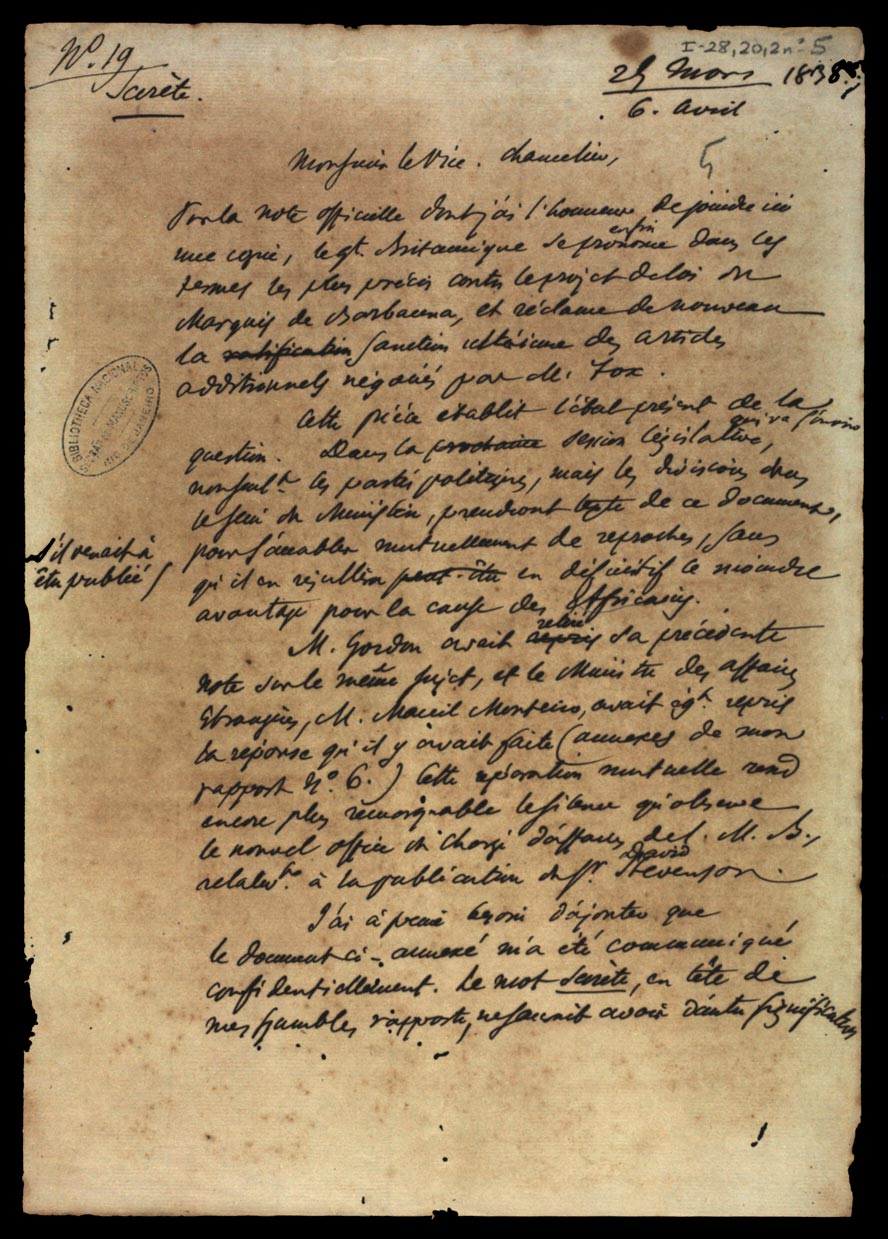 I-28,20,2 nº 5
Nº. 19
Secrète.
25 Mars 1838.
6. Avril
5
Monsieur le Vice. Chancelier,
Par la note officielle dont j'ai l'honneur de joindre ici
une copie, le gt. Britannique se prononce enfin dans les
termes les plus précis contre le projet de loi du
Marquis de Barbacena, et réclame de nouveau
la ratification sanction ultérieure des articles
additionnels négociés par M. Fox.
Cette pièce établit l'état présent de la
question. Dans la prochaine session législative,
non seult. les partis politiques, mais les divisions dans
le sein du Ministère, prendront texte de ce document,
s'il venait à
être publié
pour s'accabler mutuellement de reproches, sans
qu'il en résultera peut-être en définitif le moindre
avantage pour la cause des Africains.
M. Gordon avait repris retiré sa précédente
note sur le même sujet, et le Ministre des affaires
Etrangères, M. Maciel Monteiro, avait égt. repris
la réponse qu'il y avait faite (annexes de mon
rapport Nº. 6.) Cette mutuelle rend
encore plus remarquable le silence qu'observe
le nouvel office du Chargé d'affaires de S. M. B.,
relativt. à la publication du Sr. David Stevenson.
J'ai à peine besoin d'ajouter que
le document ci-annexé m'a été communiqué
confidentiellement. Le mot Secrète, en tête de
mes humbles rapports, ne saurait avoir d'autre signification
BIBLIOTHECA NACIONAL
RIO DE JANEIRO